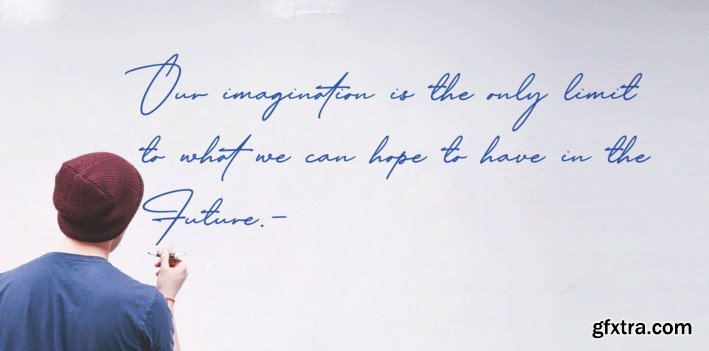 Our imagination is the only limit
to what we can hope to have in the
Future.-
gfxtra.com